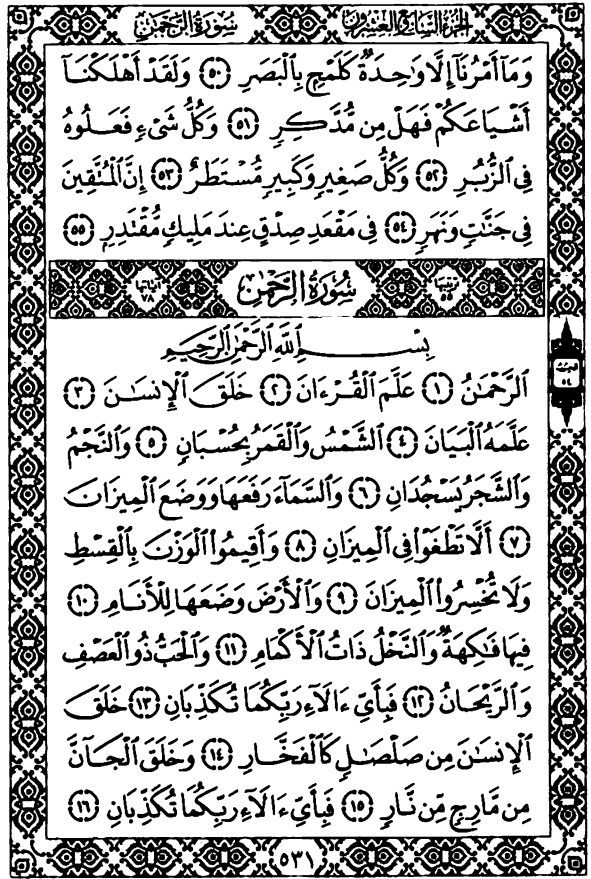 الجزء السابع والعشرون سورة الرحمن
وَمَآ أَمْرُنَآ إِلَّا وَٰحِدَةٌ كَلَمْحٍۭ بِٱلْبَصَرِ ٥٠ وَلَقَدْ أَهْلَكْنَآ
أَشْيَاعَكُمْ فَهَلْ مِن مُّدَّكِرٍ ٥١ وَكُلُّ شَىْءٍ فَعَلُوهُ
فِى ٱلزُّبُرِ ٥٢ وَكُلُّ صَغِيرٍ وَكَبِيرٍ مُّسْتَطَرٌ ٥٣ إِنَّ ٱلْمُتَّقِينَ
فِى جَنَّٰتٍ وَنَهَرٍ ٥٤ فِى مَقْعَدِ صِدْقٍ عِندَ مَلِيكٍ مُّقْتَدِرٍۭ ٥٥
ترتيبها ٥٥ سُورَةُ الرَّحْمٰن آياتها ٧٨
بِسْمِ ٱللَّهِ ٱلرَّحْمَٰنِ ٱلرَّحِيمِ
ٱلرَّحْمَٰنُ ١ عَلَّمَ ٱلْقُرْءَانَ ٢ خَلَقَ ٱلْإِنسَٰنَ ٣
عَلَّمَهُ ٱلْبَيَانَ ٤ ٱلشَّمْسُ وَٱلْقَمَرُ بِحُسْبَانٍ ٥ وَٱلنَّجْمُ
وَٱلشَّجَرُ يَسْجُدَانِ ٦ وَٱلسَّمَآءَ رَفَعَهَا وَوَضَعَ ٱلْمِيزَانَ
٧ أَلَّا تَطْغَوْا۟ فِى ٱلْمِيزَانِ ٨ وَأَقِيمُوا۟ ٱلْوَزْنَ بِٱلْقِسْطِ
وَلَا تُخْسِرُوا۟ ٱلْمِيزَانَ ٩ وَٱلْأَرْضَ وَضَعَهَا لِلْأَنَامِ ١٠
فِيهَا فَٰكِهَةٌ وَٱلنَّخْلُ ذَاتُ ٱلْأَكْمَامِ ١١ وَٱلْحَبُّ ذُو ٱلْعَصْفِ
وَٱلرَّيْحَانُ ١٢ فَبِأَىِّ ءَالَآءِ رَبِّكُمَا تُكَذِّبَانِ ١٣ خَلَقَ
ٱلْإِنسَٰنَ مِن صَلْصَٰلٍ كَٱلْفَخَّارِ ١٤ وَخَلَقَ ٱلْجَآنَّ
مِن مَّارِجٍ مِّن نَّارٍ ١٥ فَبِأَىِّ ءَالَآءِ رَبِّكُمَا تُكَذِّبَانِ ١٦
٥٣١